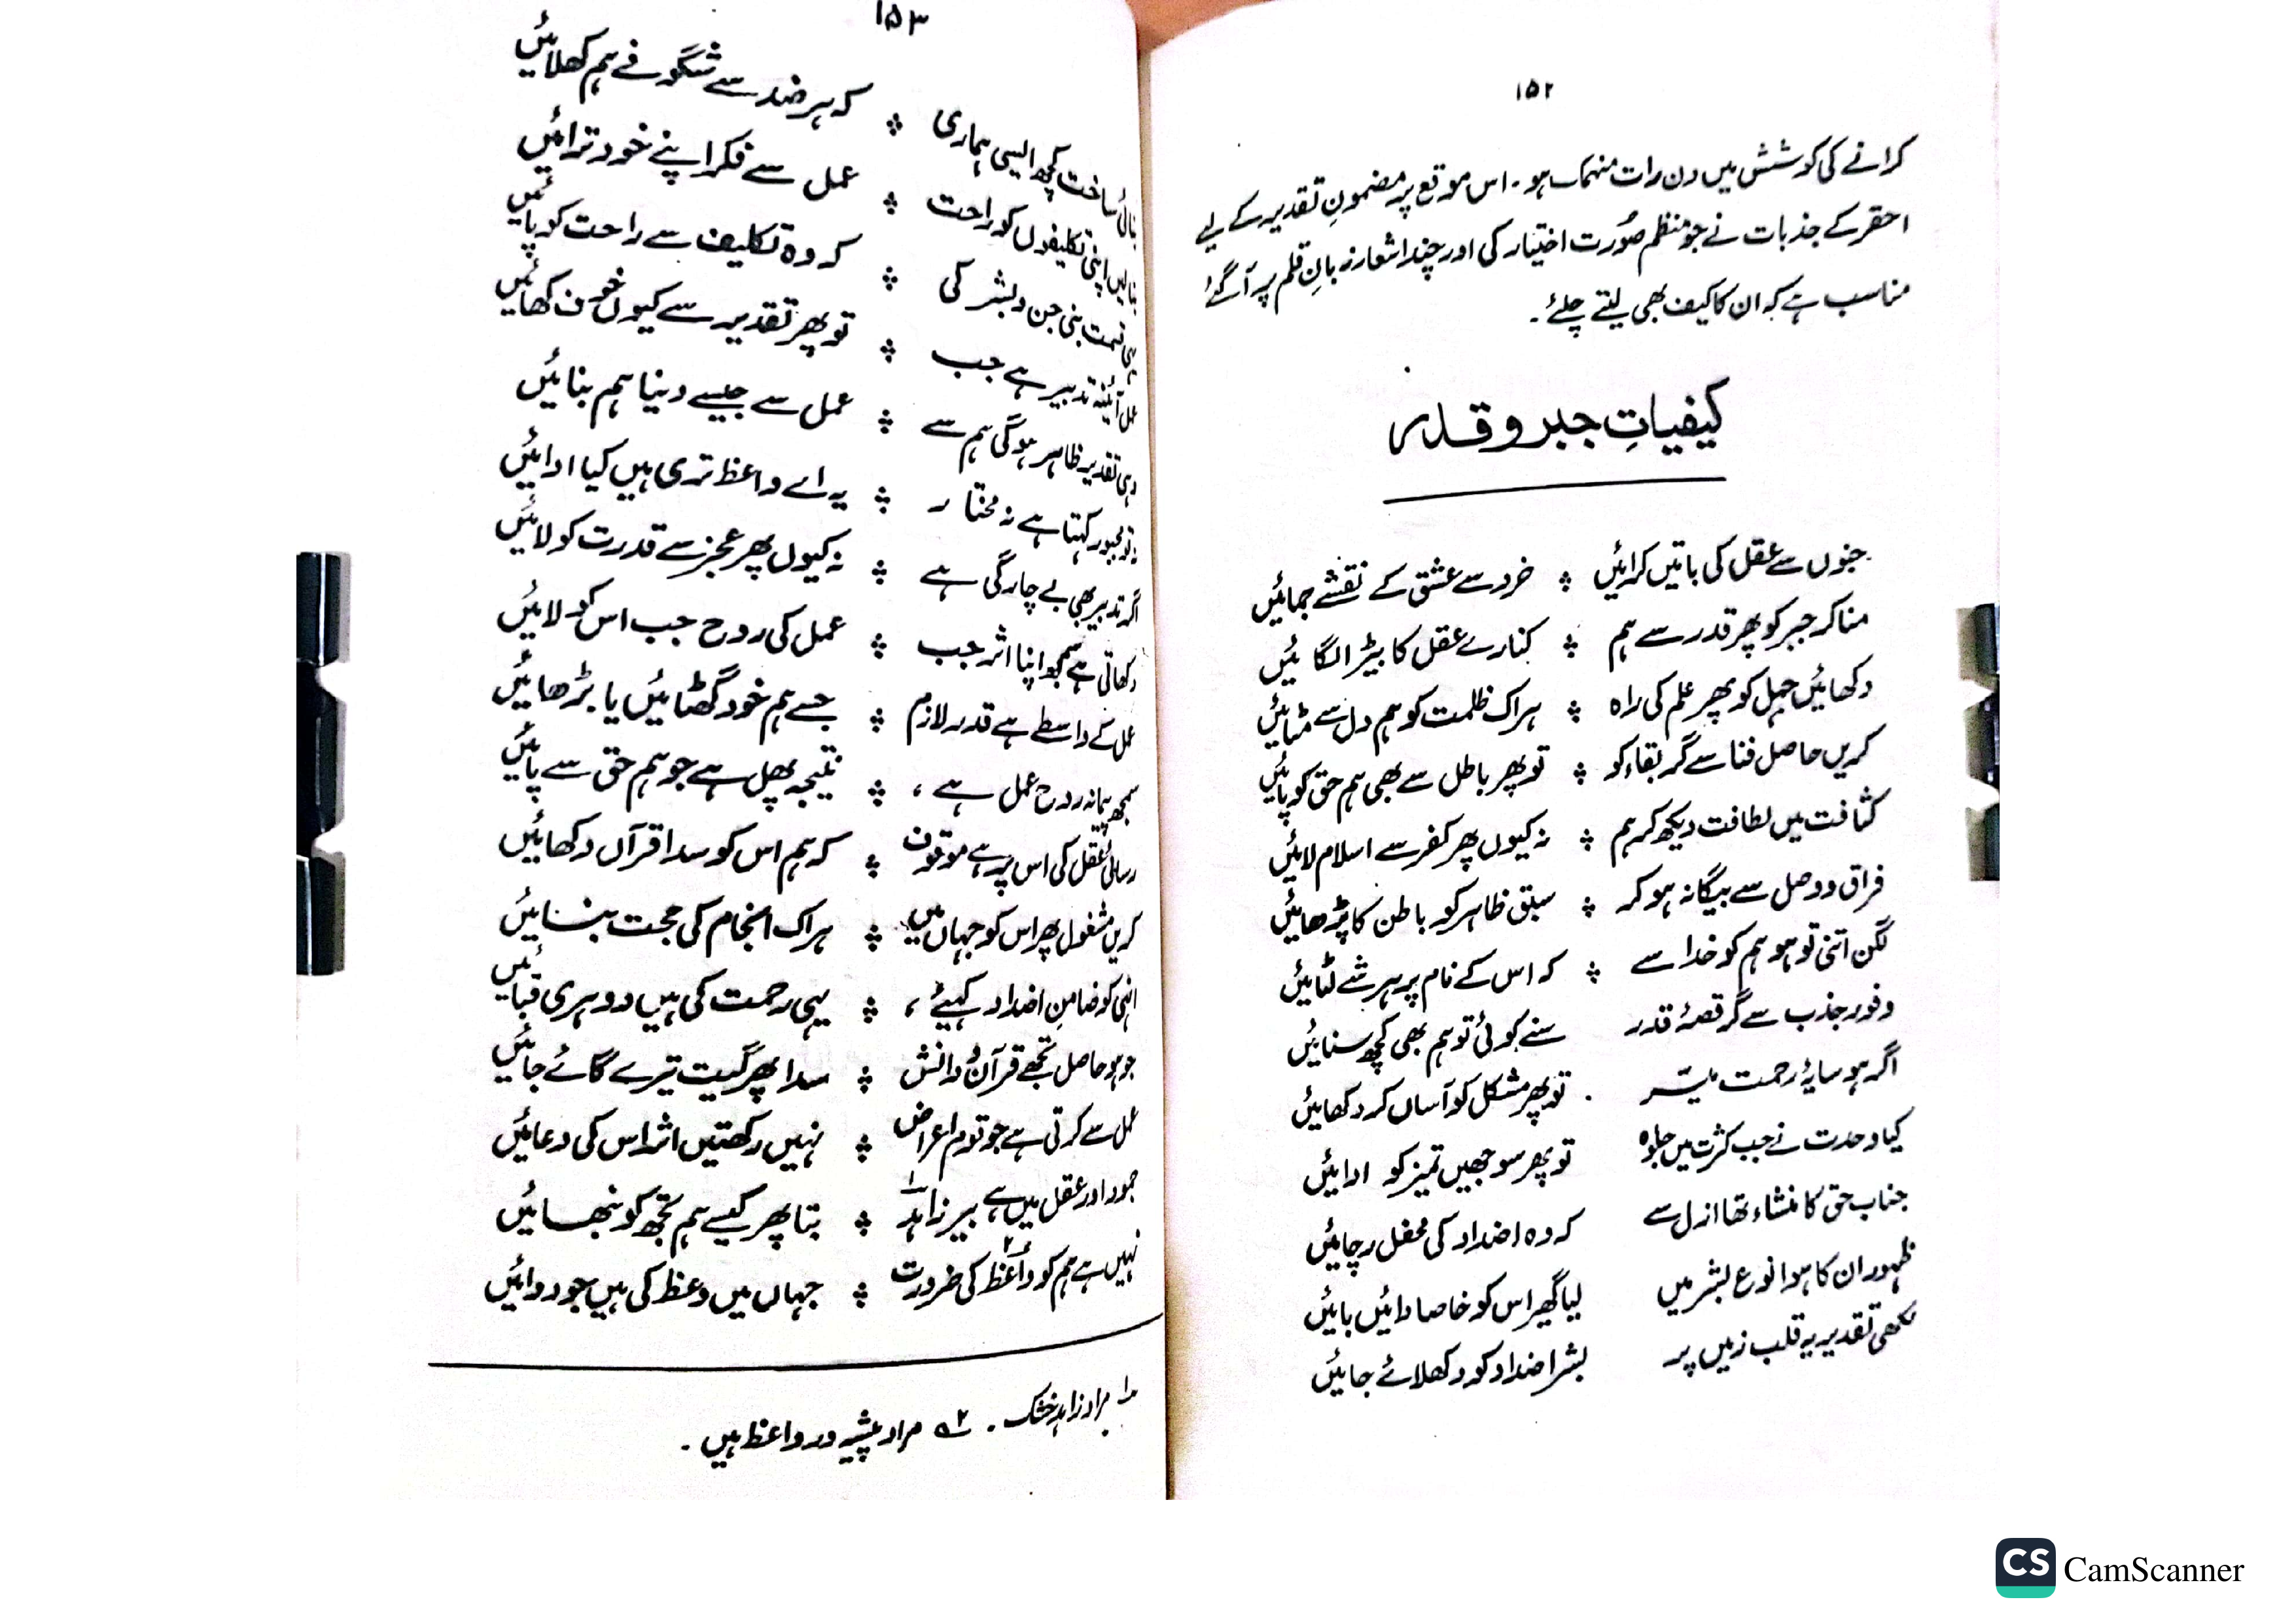 ۱۵۲
کرانے کی کوشش میں دن رات منہمک ہو۔ اس موقع پر مضمونِ تقدیر کے لیے
احقر کے جذبات نے جو منظم صُورت اختیار کی اور چند اشعار زبانِ قلم پر آگئے
مناسب ہے کہ ان کا کیف بھی لیتے چلئے۔
کیفیاتِ جبر و قدر
جنوں سے عقل کی باتیں کرائیں ؞ خرد سے عشق کے نقشے جمائیں
مناکر جبر کو پھر قدر سے ہم ؞ کنارے عقل کا بیڑا لگائیں
دکھائیں جہل کو پھر علم کی راہ ؞ ہر اک ظلمت کو ہم دل سے مٹائیں
کریں حاصل فنا سے گر بقاء کو ؞ تو پھر باطل سے بھی ہم حق کو پائیں
کثافت میں لطافت دیکھ کر ہم ؞ نہ کیوں پھر کفر سے اسلام لائیں
فراق و وصل سے بیگانہ ہو کر ؞ سبق ظاہر کو باطن کا پڑھائیں
لگن اتنی تو ہو ہم کو خدا سے ؞ کہ اس کے نام پر ہر شے لٹائیں
وفورِ جذب سے گر قصۂ قدر سنے کوئی تو ہم بھی کچھ سنائیں
اگر ہو سایۂ رحمت میسّر . تو پھر مشکل کو آساں کر دکھائیں
کیا وحدت نے جب کثرت میں جلوہ تو پھر سوجھیں تمیز کو ادائیں
جناب حق کا منشاء تھا ازل سے کہ وہ اضداد کی محفل رچائیں
ظہور ان کا ہوا نوع بشر میں لیا گھیر اس کو خاصا دائیں بائیں
لکھی تقدیر یہ قلب زمیں پر بشر اضداد کو دکھلائے جائیں
۱۵۳
بنائی ساخت کچھ ایسی ہماری ؞ کہ ہر ضد سے شگوفے ہم کھلائیں
بنالیں اپنی تکلیفوں کو راحت ؞ عمل سے فکر اپنے خود ترائیں
یہی قسمت بنی جن و بشر کی ؞ کہ وہ تکلیف سے راحت کو پائیں
عمل آئینۂ تدبیر ہے جب ؞ تو پھر تقدیر سے کیوں خوف کھائیں
وہی تقدیر ظاہر ہوگی ہم سے ؞ عمل سے جیسے دنیا ہم بنائیں
نہ تو مجبور کہتا ہے نہ مختار ؞ یہ اے واعظ تری ہیں کیا ادائیں
اگر تدبیر بھی بے چارگی ہے ؞ نہ کیوں پھر عجز سے قدرت کو لائیں
دکھاتی ہے سمجھ اپنا اثر جب ؞ عمل کی روح جب اس کو لائیں
عمل کے واسطے ہے قدر لازم ؞ جسے ہم خود گھٹائیں یا بڑھائیں
سمجھ پیمانہ روح عمل ہے ، ؞ نتیجہ پھل ہے جو ہم حق سے پائیں
رسائی عقل کی اس پر ہے موقوف ؞ کہ ہم اس کو سدا قرآں دکھائیں
کریں مشغول پھر اس کو جہاں میں ؞ ہر اک انجام کی حجت بنائیں
انہی کو ضامنِ اضداد کہیئے ، ؞ یہی رحمت کی ہیں دوہری قبائیں
جو ہو حاصل تجھے قرآن و دانش ؞ سدا پھر گیت تیرے گائے جائیں
عمل سے کرتی ہے جو قوم اعراض ؞ نہیں رکھتیں اثر اس کی دعائیں
جمود اور عقل میں ہے بیر زاہد۱ ؞ بتا پھر کیسے ہم تجھ کو نبھائیں
نہیں ہے ہم کو واعظ۲ کی ضرورت ؞ جہاں میں وعظ کی ہیں جو روائیں
۱ مراد زاہد خشک۔ ۲ مراد پیشہ ور واعظ ہیں۔
CS CamScanner